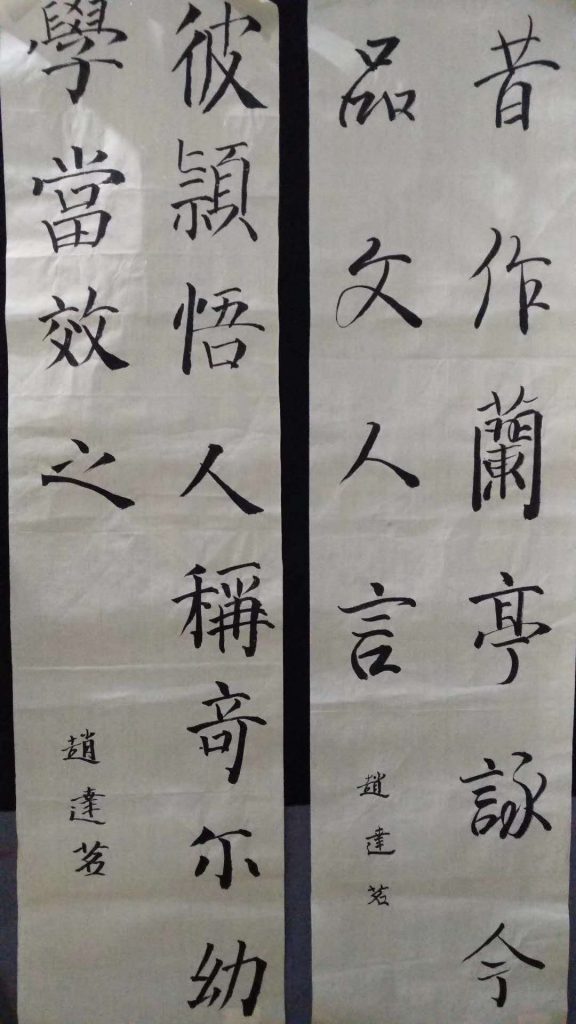 昔作蘭亭詠今
品文人言
趙達茗
彼穎悟人稱奇尔幼
學當效之
趙達茗